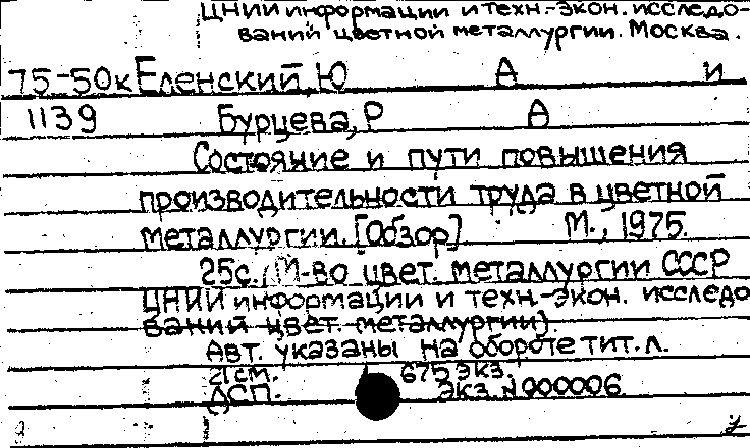 ЦНИИ информации и техн.-экон. исследо-
ваний цветной металлургии. Москва.
75-50к Еленский, Ю А и
1139 Бурцева, Р А
Состояние и пути повышения
производительности труда в цветной
металлургии. [Обзор]. М., 1975.
25с. (М-во цвет. металлургии СССР
ЦНИИ информации и техн.-экон. исследо
ваний цвет. металлургии)
Авт. указаны на обороте тит. л.
21см. 675 экз.
ДСП. Экз. N 000006